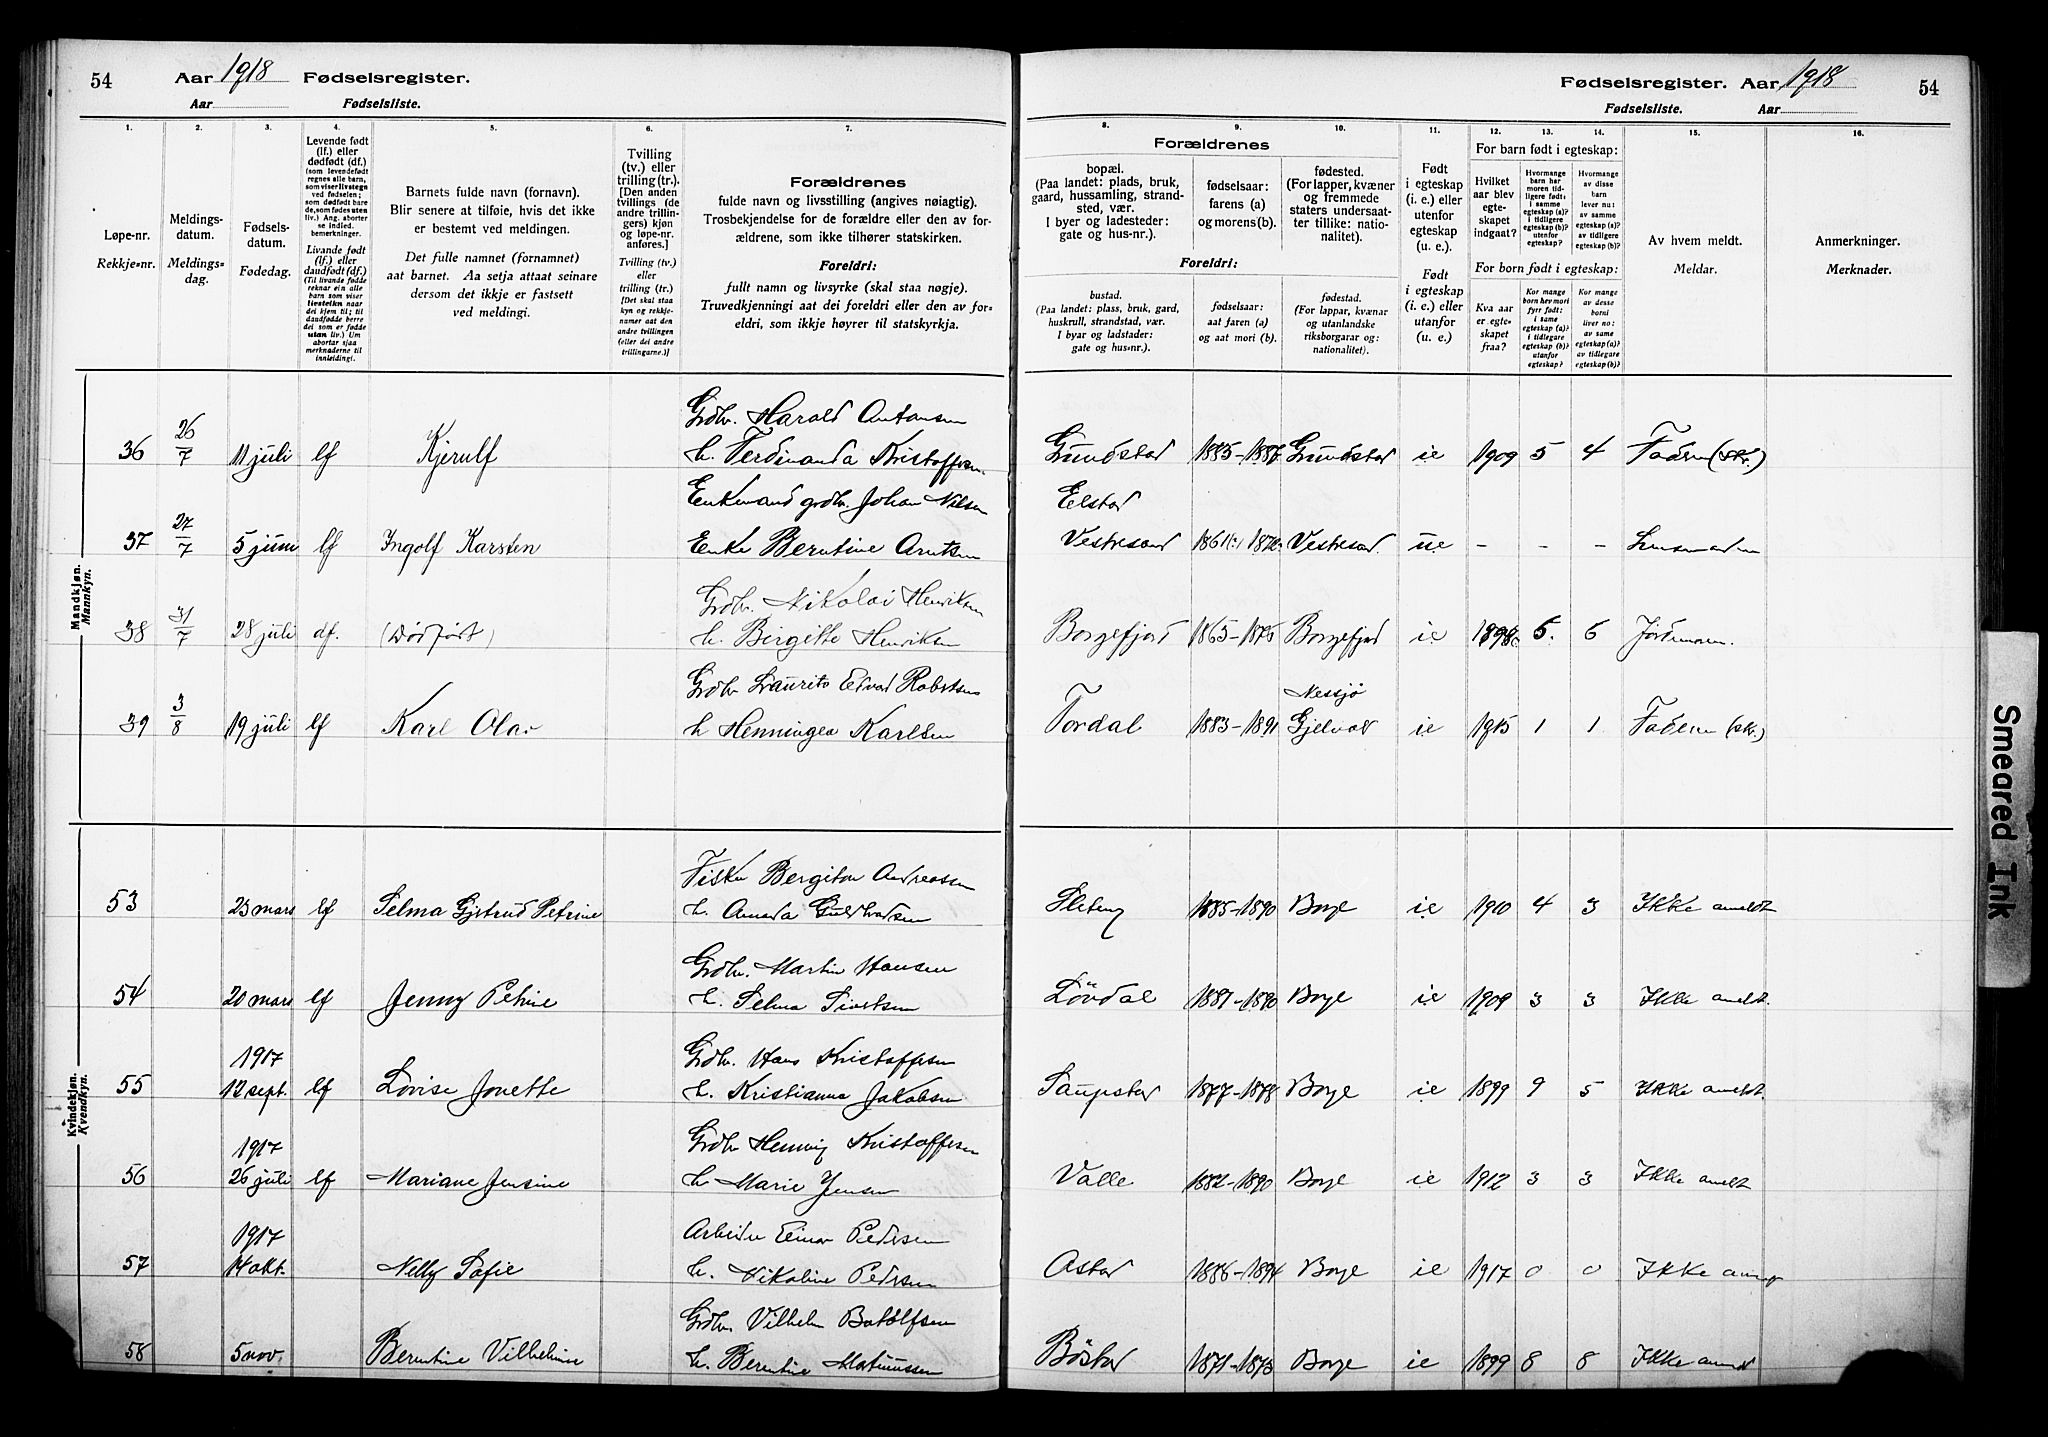 54 Aar 1918 Fødselsregister.
Aar Fødselsliste.
Fødselsregister. Aar 1918 54
Fødselsliste. Aar
1. 2. 3. 4. 5. 6. 7.
Løpe-nr.
Rekkje-nr.
Meldings-
datum.
Meldings-
dag.
Fødsels-
datum.
Fødedag.
Levende født
(lf.) eller
dødfødt (df.)
(som levendefødt
regnes alle barn,
som viser livstegn
ved fødselen;
som dødfødt bare
de, som fødes uten
liv.) Ang. aborter
se indled.
bemerkninger.
Livande født
(lf.) eller
daudfødt (df.)
(Til livande fødde
reknar ein alle
born som viser
livsteikn naar
dei kjem til; til
daudfødde berre
dei som er fødde
utan liv.) Um
abortar sjaa
merknaderne til
innleiding.
Barnets fulde navn (fornavn).
Blir senere at tilføie, hvis det ikke
er bestemt ved meldingen.
Det fulle namnet (fornamnet)
aat barnet. Aa setja attaat seinare
dersom det ikkje er fastsett
ved meldingi.
Tvilling
(tv.) eller
trilling (tr.).
[Den anden
tvillings (de
andre trillin-
gers) kjøn
og løpe-nr.
anføres.]
Tvilling (tv.)
eller
trilling (tr.)
[Det skal staa
kyn og rekkje-
numer aat den
andre tvillingen
(eller dei andre
trillingarne.)]
Forældrenes
fulde navn og livsstilling (angives nøiagtig).
Trosbekjendelse for de forældre eller den av for-
ældrene, som ikke tilhører statskirken.
Foreldri:
fullt namn og livsyrke (skal staa nøgje).
Truvedkjenningi aat dei foreldri eller den av for-
eldri, som ikkje høyrer til statskyrkja.
8. 9. 10. 11. 12. 13. 14. 15. 16.
Forældrenes
bopæl.
(Paa landet: plads, bruk,
gaard, hussamling, strand-
sted, vær.
I byer og ladesteder:
gate og hus-nr.).
fødselsaar:
farens (a)
og morens (b).
fødested.
(For lapper, kvæner
og fremmede
staters undersaat-
ter tillike: natio-
nalitet).
Foreldri:
bustad.
(Paa landet: plass, bruk, gard,
huskrull, strandstad, vær.
I byar og ladstader:
gate og hus-nr.).
fødselsaar:
aat faren (a)
og aat mori (b).
fødestad.
(For lappar, kvænar
og utanlandske
riksborgarar og:
nationalitet).
Født
i egteskap
(i. e.) eller
utenfor
egteskap
(u. e.).
Født
i egteskap
(i. e.) eller
utanfor
(u. e.).
For barn født i egteskap:
Hvilket
aar blev
egte-
skapet
indgaat?
Hvormange
barn har
moren tid-
ligere født:
i samme
egteskap (a)?
i tidligere
egteskap (b)?
utenfor
egteskap?
Hvormange
av disse
barn
lever nu:
av samme
egteskap (a)?
av tidligere
egteskap (b)?
For born født i egteskap:
Kva aar
er egte-
skapet
fraa?
Kor mange
born hev mori
fyrr født:
i same
egteskap (a)?
i tidlegare
egteskap (b)?
utanfor
egteskap?
Kor mange
av desse
borni
liver no:
av same
egteskap (a)?
av tidlegare
egteskap (b)?
Av hvem meldt.
Meldar.
Anmerkninger.
Merknader.
Mandkjøn.
Mannkyn.
Grdbr. Harald Antonsen
36 26/7 11 juli lf Kjerulf h. Ferdinanda Kristoffersen Gundstad 1885-1887 Gundstad ie 1909 5 4 Faderen (skr.)
Enkemand grdbr. Johan Nilsen Eelstad
37 27/7 5 juni lf Ingolf Karsten Enke Berntine Arntsen Vestresand 1861 Vestresand ue - - -
Grdbr. Nikolai Henriksen
38 31/7 28 juli df. (Dødfødt) h. Birgitte Henriksen Borgefjord 1865-1876 Borgefjord ie 5. 6 Jordmoren.
Grdbr Laurits Edvard Robertsen Nessjø
39 3/8 19 juli lf Karl Olav h Henningea Karlsen Tordal 1883-1891 ie 1915 1 1 Faderen (skr.)
Kvindekjøn.
Kvendkyn.
Fisker Bergiton Andreassen
53 23 mars lf Selma Gjertrud Petrine h. Amanda 1885-1890 Borge ie 1910 4 3 Ikke anmeldt
Grdbr. Martin Hansen
54 20 mars lf Jenny Petrine h. Selma Sivertsen Lövdal 1881-1890 Borge ie 1909 3 3 Ikke anmeldt.
1917 Grdbr. Hans Kristoffersen
55 12 sept. lf Lovise Jonette h. Kristianna Jakobsen Saupstad 1877-1878 Borge ie 1899 9 5 Ikke anmeldt.
1917 Grdbr Henning Kristoffersen
56 26 juli lf Mariane Jensine h. Marie Jensen Valle 1882-1890 Borge ie 1912 3 3 Ikke anmeldt
1917 Arbeider Einar Pedersen
57 14 okt. Nelly Sofie h. Nikoline Pedersen Astad 1886-1894 Borge ie 1917 0 0 Ikke anmeldt
Grdbr. Vilhelm Botolfsen
58 5 nov. Berntine Vilhelmine h. Berntine Matiussen Böstad 1871-1873 Borge ie 1899 8 8 Ikke anmeldt
Smeared Ink